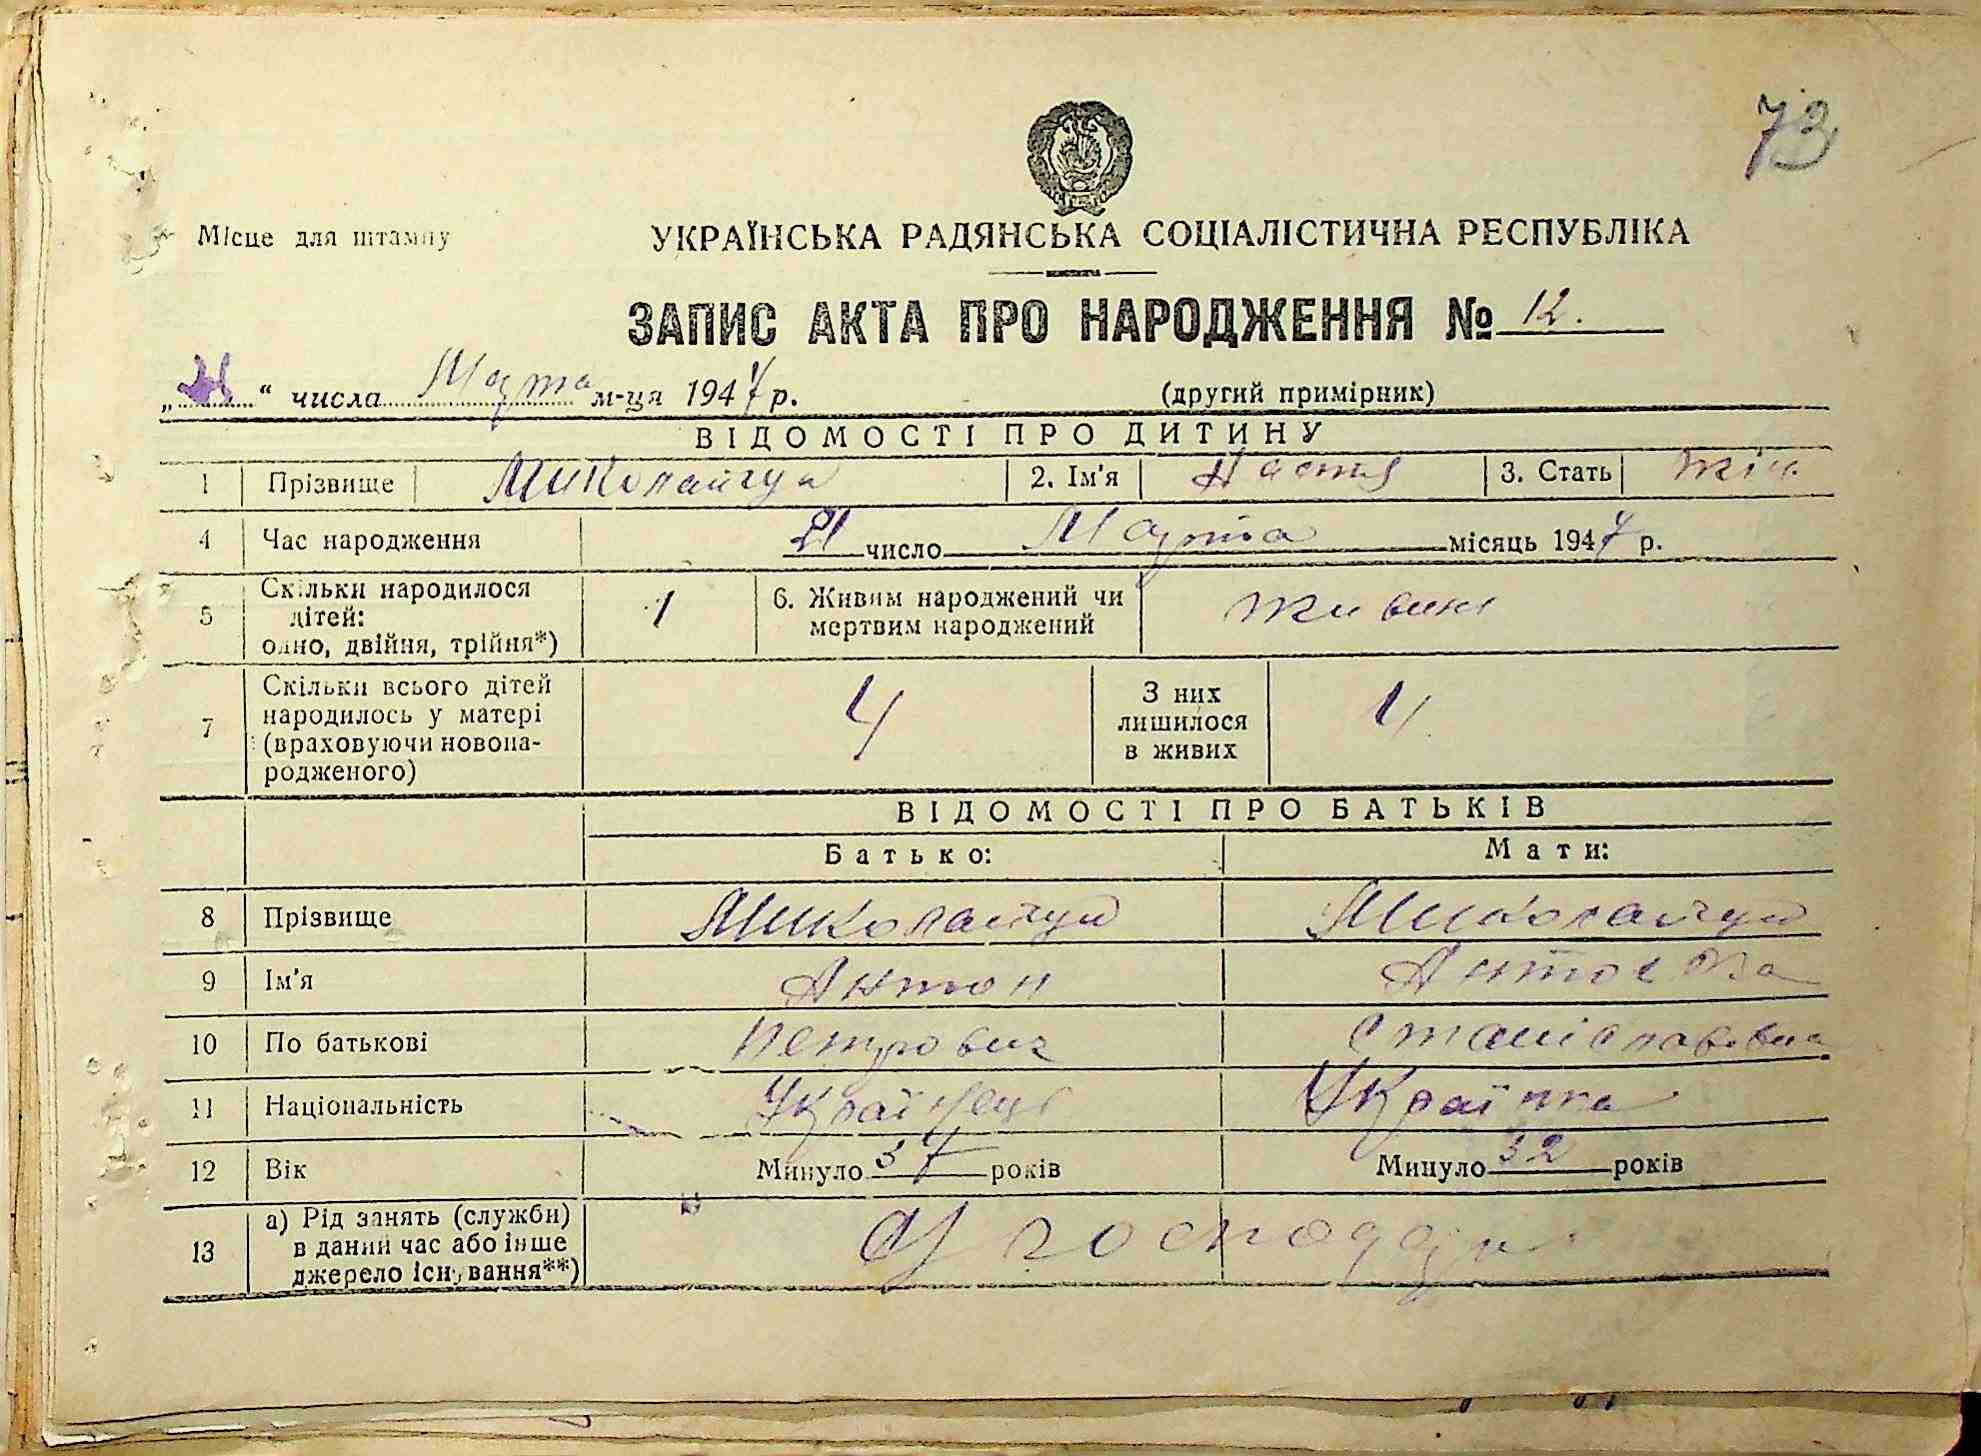 73
Місце для штампу
УКРАЇНСЬКА РАДЯНСЬКА СОЦІАЛІСТИЧНА РЕСПУБЛІКА
ЗАПИС АКТА ПРО НАРОДЖЕННЯ № 12.
„ “ числа Марта м-ця 1947 р. (другий примірник)
ВІДОМОСТІ ПРО ДИТИНУ
1 Прізвище Миколайчук 2. Ім'я Настя 3. Стать жін.
4 Час народження 21 число Марта місяць 1947 р.
5 Скільки народилося дітей: одно, двійня, трійня*) 1 6. Живим народжений чи мертвим народжений живим
7 Скільки всього дітей народилось у матері (враховуючи новонародженого) 4 З них лишилося в живих 4
ВІДОМОСТІ ПРО БАТЬКІВ
Батько: Мати:
8 Прізвище Миколайчук Миколайчук
9 Ім'я Антон
10 По батькові Петрович Станіславівна
11 Національність Українець Українка
12 Вік Минуло 37 років Минуло 32 років
13 а) Рід занять (служби) в даний час або інше джерело існування**) У господар